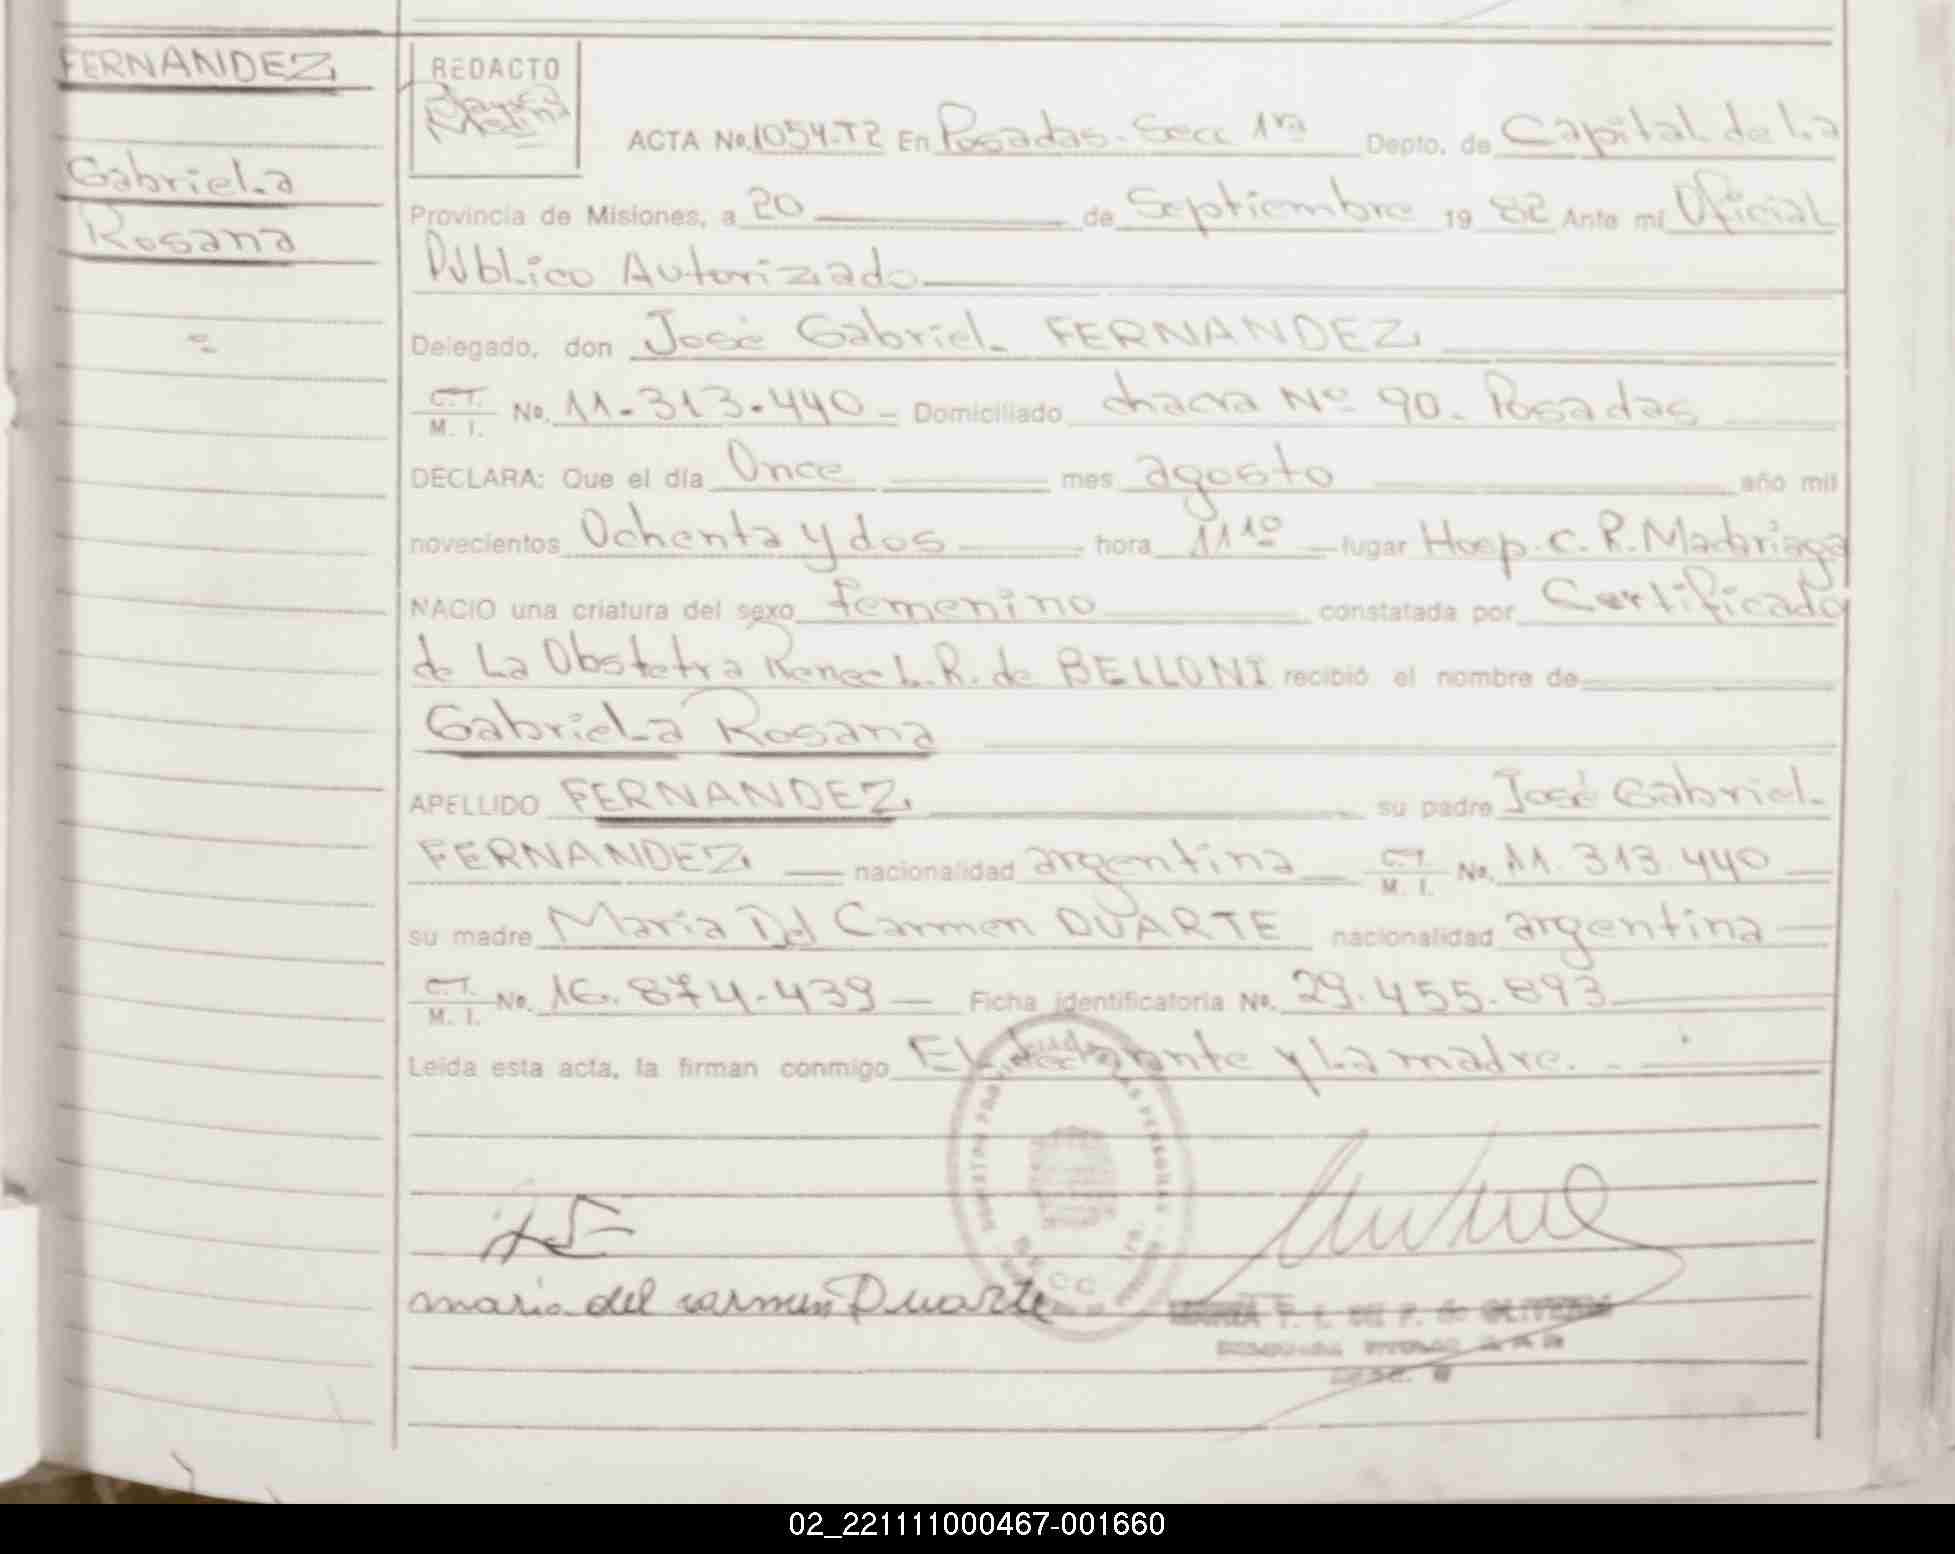 FERNANDEZ
Gabriela
Rosana
REDACTO
ACTA No. 1054-T2 En Posadas - Secc 1ra Depto. de Capital de La
Provincia de Misiones, a 20 de Septiembre 19 82 Ante mi Oficial
Público Autorizado
Delegado, don José Gabriel FERNANDEZ
C.T.
M. I. No. 11.313.440 - Domiciliado chacra Nº 90. Posadas
DECLARA: Que el día Once mes agosto año mil
novecientos Ochenta y dos hora 11¹⁰ lugar Hosp. C. R. Madariaga
NACIO una criatura del sexo femenino constatada por Certificado
de La Obstetra Renee L. R. de BELLONI recibió el nombre de
Gabriela Rosana
APELLIDO FERNANDEZ su padre José Gabriel
FERNANDEZ nacionalidad argentina C.T.
M. I. No. 11.313.440
su madre Maria Del Carmen DUARTE nacionalidad argentina
C.T.
M. I. No. 16.874.439 Ficha identificatoria No. 29.455.893
Leída esta acta, la firman conmigo El declarante y La madre.
maria del carmen Duarte
02_221111000467-001660